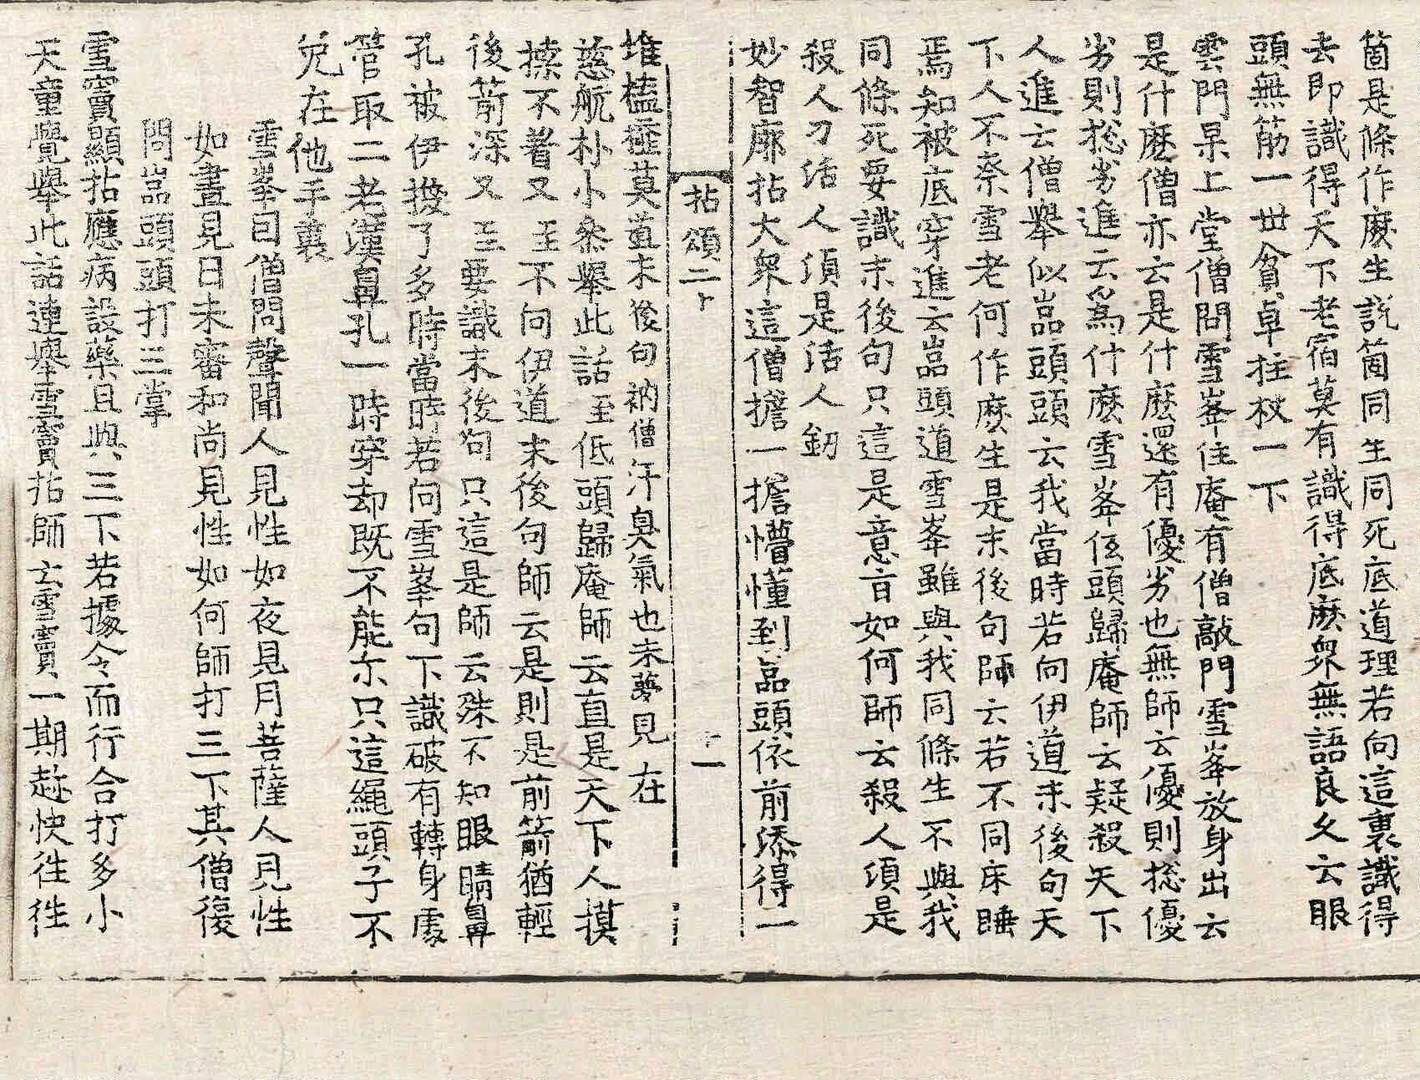 箇是條作麽生說箇同生同死底道理若向這裏識得
去即識得天下老宿莫有識得底麽衆無語良久云眼
頭無筋一世貧卓拄杖一下
雲門杲上堂僧問雪峯住庵有僧敲門雪峯放身出云
是什麽僧亦云是什麽還有優劣也無師云優則捴優
劣則捴劣進云爲什麽雪峯低頭歸庵師云疑殺天下
人進云僧舉似嵓頭頭云我當時若向伊道末後句天
下人不柰雪老何作麽生是末後句師云若不同床睡
焉知被底穿進云嵓頭道雪峯雖與我同條生不與我
同條死要識末後句只這是意旨如何師云殺人須是
殺人刀活人須是活人劒
妙智廓拈大衆這僧擔一擔懵懂到嵓頭依前添得一
拈頌二十 十一
堆榼𣜂莫道末後句衲僧汗臭氣也未夢見在
慈航朴小叅舉此話至低頭歸庵師云直是天下人摸
𢱢不著又至不向伊道末後句師云是則是前箭猶輕
後箭深又至要識末後句只這是師云殊不知眼睛鼻
孔被伊換了多時當時若向雪峯句下識破有轉身處
管取二老漢鼻孔一時穿却既不能尒只這繩頭子不
免在他手裏
雪峯因僧問聲聞人見性如夜見月菩薩人見性
如晝見日未審和尚見性如何師打三下其僧復
問嵓頭頭打三掌
雪竇顯拈應病設藥且與三下若據令而行合打多小
天童覺舉此話連舉雪竇拈師云雪竇一期趂快往往